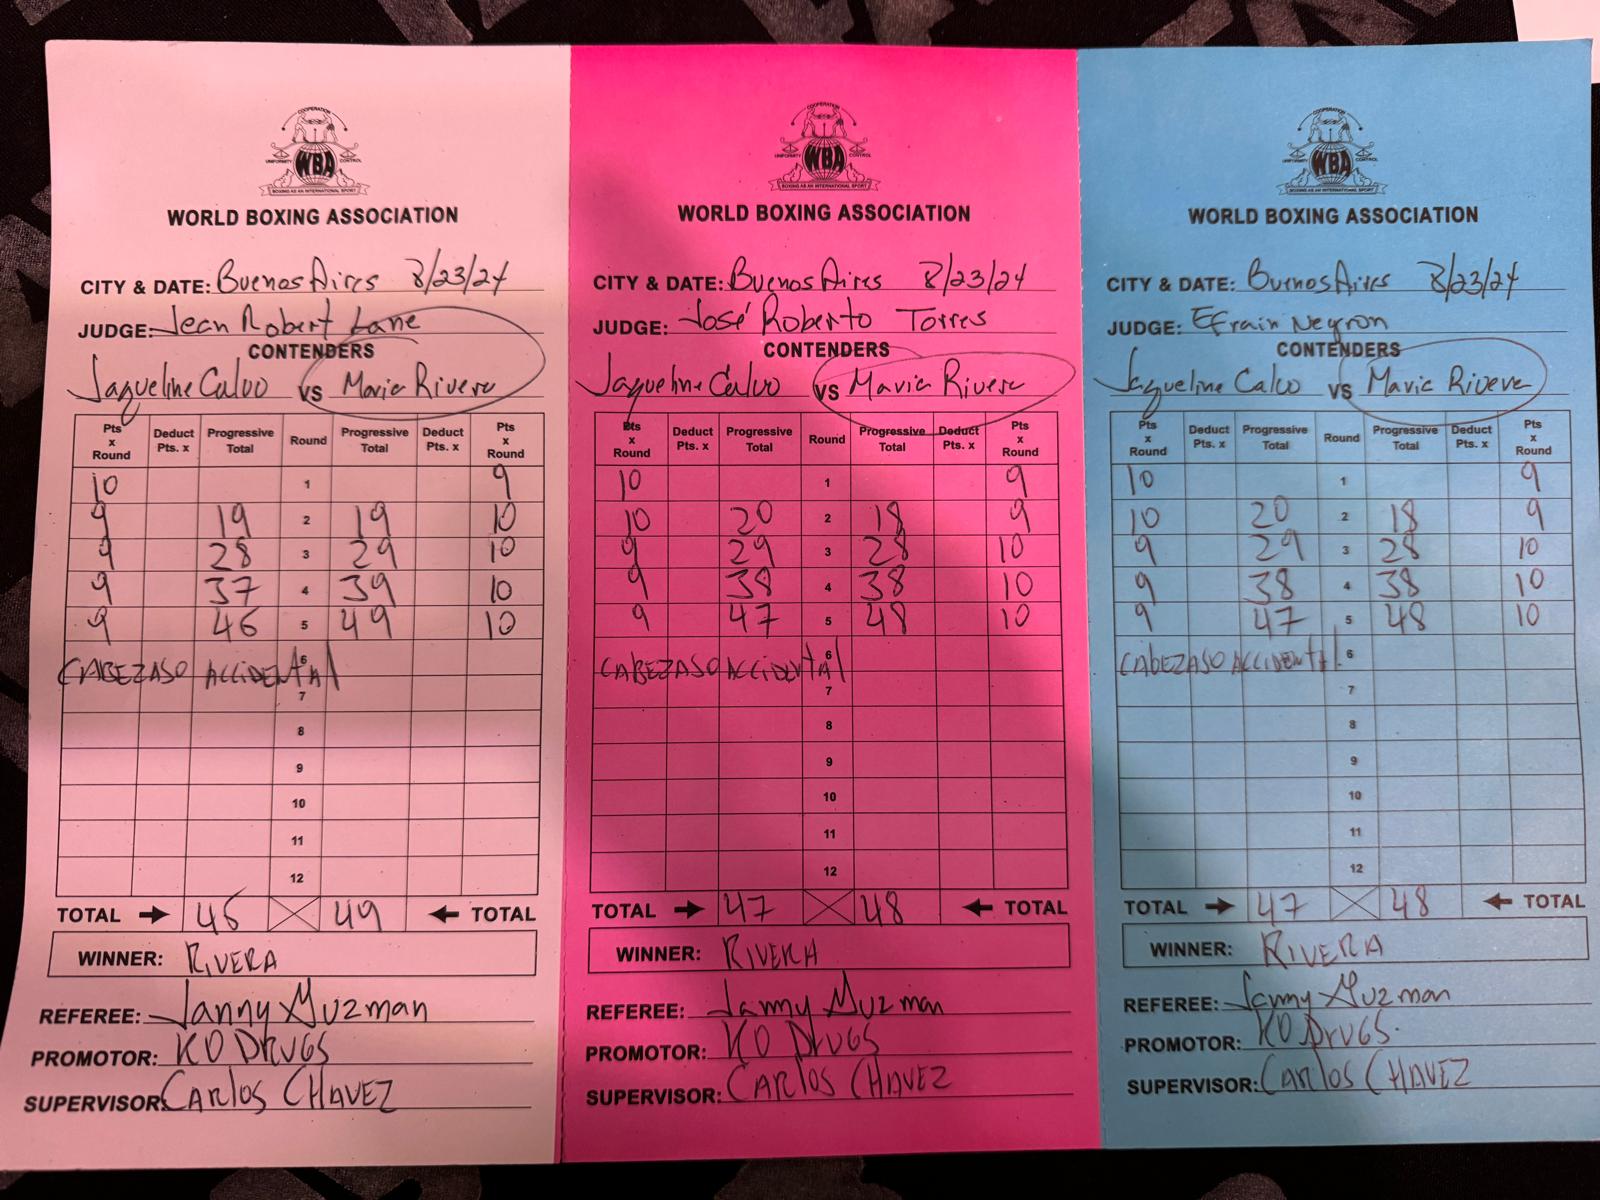 COOPERATION
UNIFORMITY WBA CONTROL
BOXING AS AN INTERNATIONAL SPORT
WORLD BOXING ASSOCIATION
CITY & DATE: Buenos Aires 8/23/24
JUDGE: Jean Robert Lane
CONTENDERS
Jaqueline Calvo VS Maria Rivera
Pts x Round Deduct Pts. x Progressive Total Round Progressive Total Deduct Pts. x Pts x Round
10 1 9
9 19 2 19 10
9 28 3 29 10
9 37 4 39 10
9 46 5 49 10
6
CABEZASO ACCIDENTAL
7
8
9
10
11
12
TOTAL → 46 49 ← TOTAL
WINNER: RIVERA
REFEREE: Janny Guzman
PROMOTOR: KO DRUGS
SUPERVISOR: CARLOS CHAVEZ
COOPERATION
UNIFORMITY WBA CONTROL
BOXING AS AN INTERNATIONAL SPORT
WORLD BOXING ASSOCIATION
CITY & DATE: Buenos Aires 8/23/24
JUDGE: José Roberto Torres
CONTENDERS
Jaqueline Calvo VS Maria Rivera
Pts x Round Deduct Pts. x Progressive Total Round Progressive Total Deduct Pts. x Pts x Round
10 1 9
10 20 2 18 9
9 29 3 28 10
9 38 4 38 10
9 47 5 48 10
6
CABEZASO ACCIDENTAL
7
8
9
10
11
12
TOTAL → 47 48 ← TOTAL
WINNER: RIVERA
REFEREE: Janny Guzman
PROMOTOR: KO DRUGS
SUPERVISOR: CARLOS CHAVEZ
COOPERATION
UNIFORMITY WBA CONTROL
BOXING AS AN INTERNATIONAL SPORT
WORLD BOXING ASSOCIATION
CITY & DATE: Buenos Aires 8/23/24
JUDGE: Efrain Negron
CONTENDERS
Jaqueline Calvo VS Maria Rivera
Pts x Round Deduct Pts. x Progressive Total Round Progressive Total Deduct Pts. x Pts x Round
10 1 9
10 20 2 18 9
9 29 3 28 10
9 38 4 38 10
9 47 5 48 10
CABEZASO ACCIDENTAL 6
7
8
9
10
11
12
TOTAL → 47 48 ← TOTAL
WINNER: RIVERA
REFEREE: Janny Guzman
PROMOTOR: KO DRUGS
SUPERVISOR: CARLOS CHAVEZ